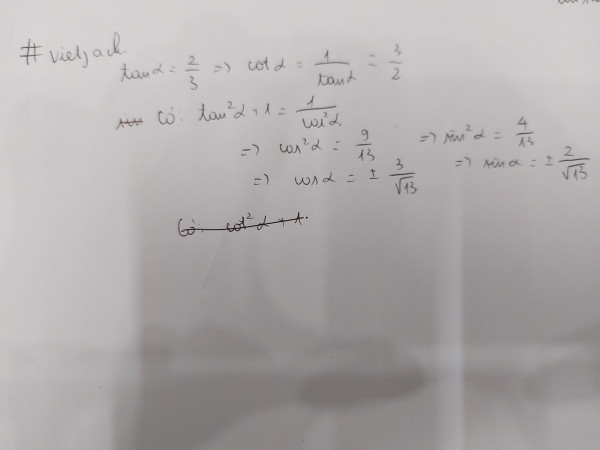 #vietjack.
tanα = 2/3 => cotα = 1/tanα = 3/2
Có: tan²α + 1 = 1/cos²α
=> cos²α = 9/13 => sin²α = 4/13
=> cosα = ± 3/√13 => sinα = ± 2/√13
Có: cot²α + 1.